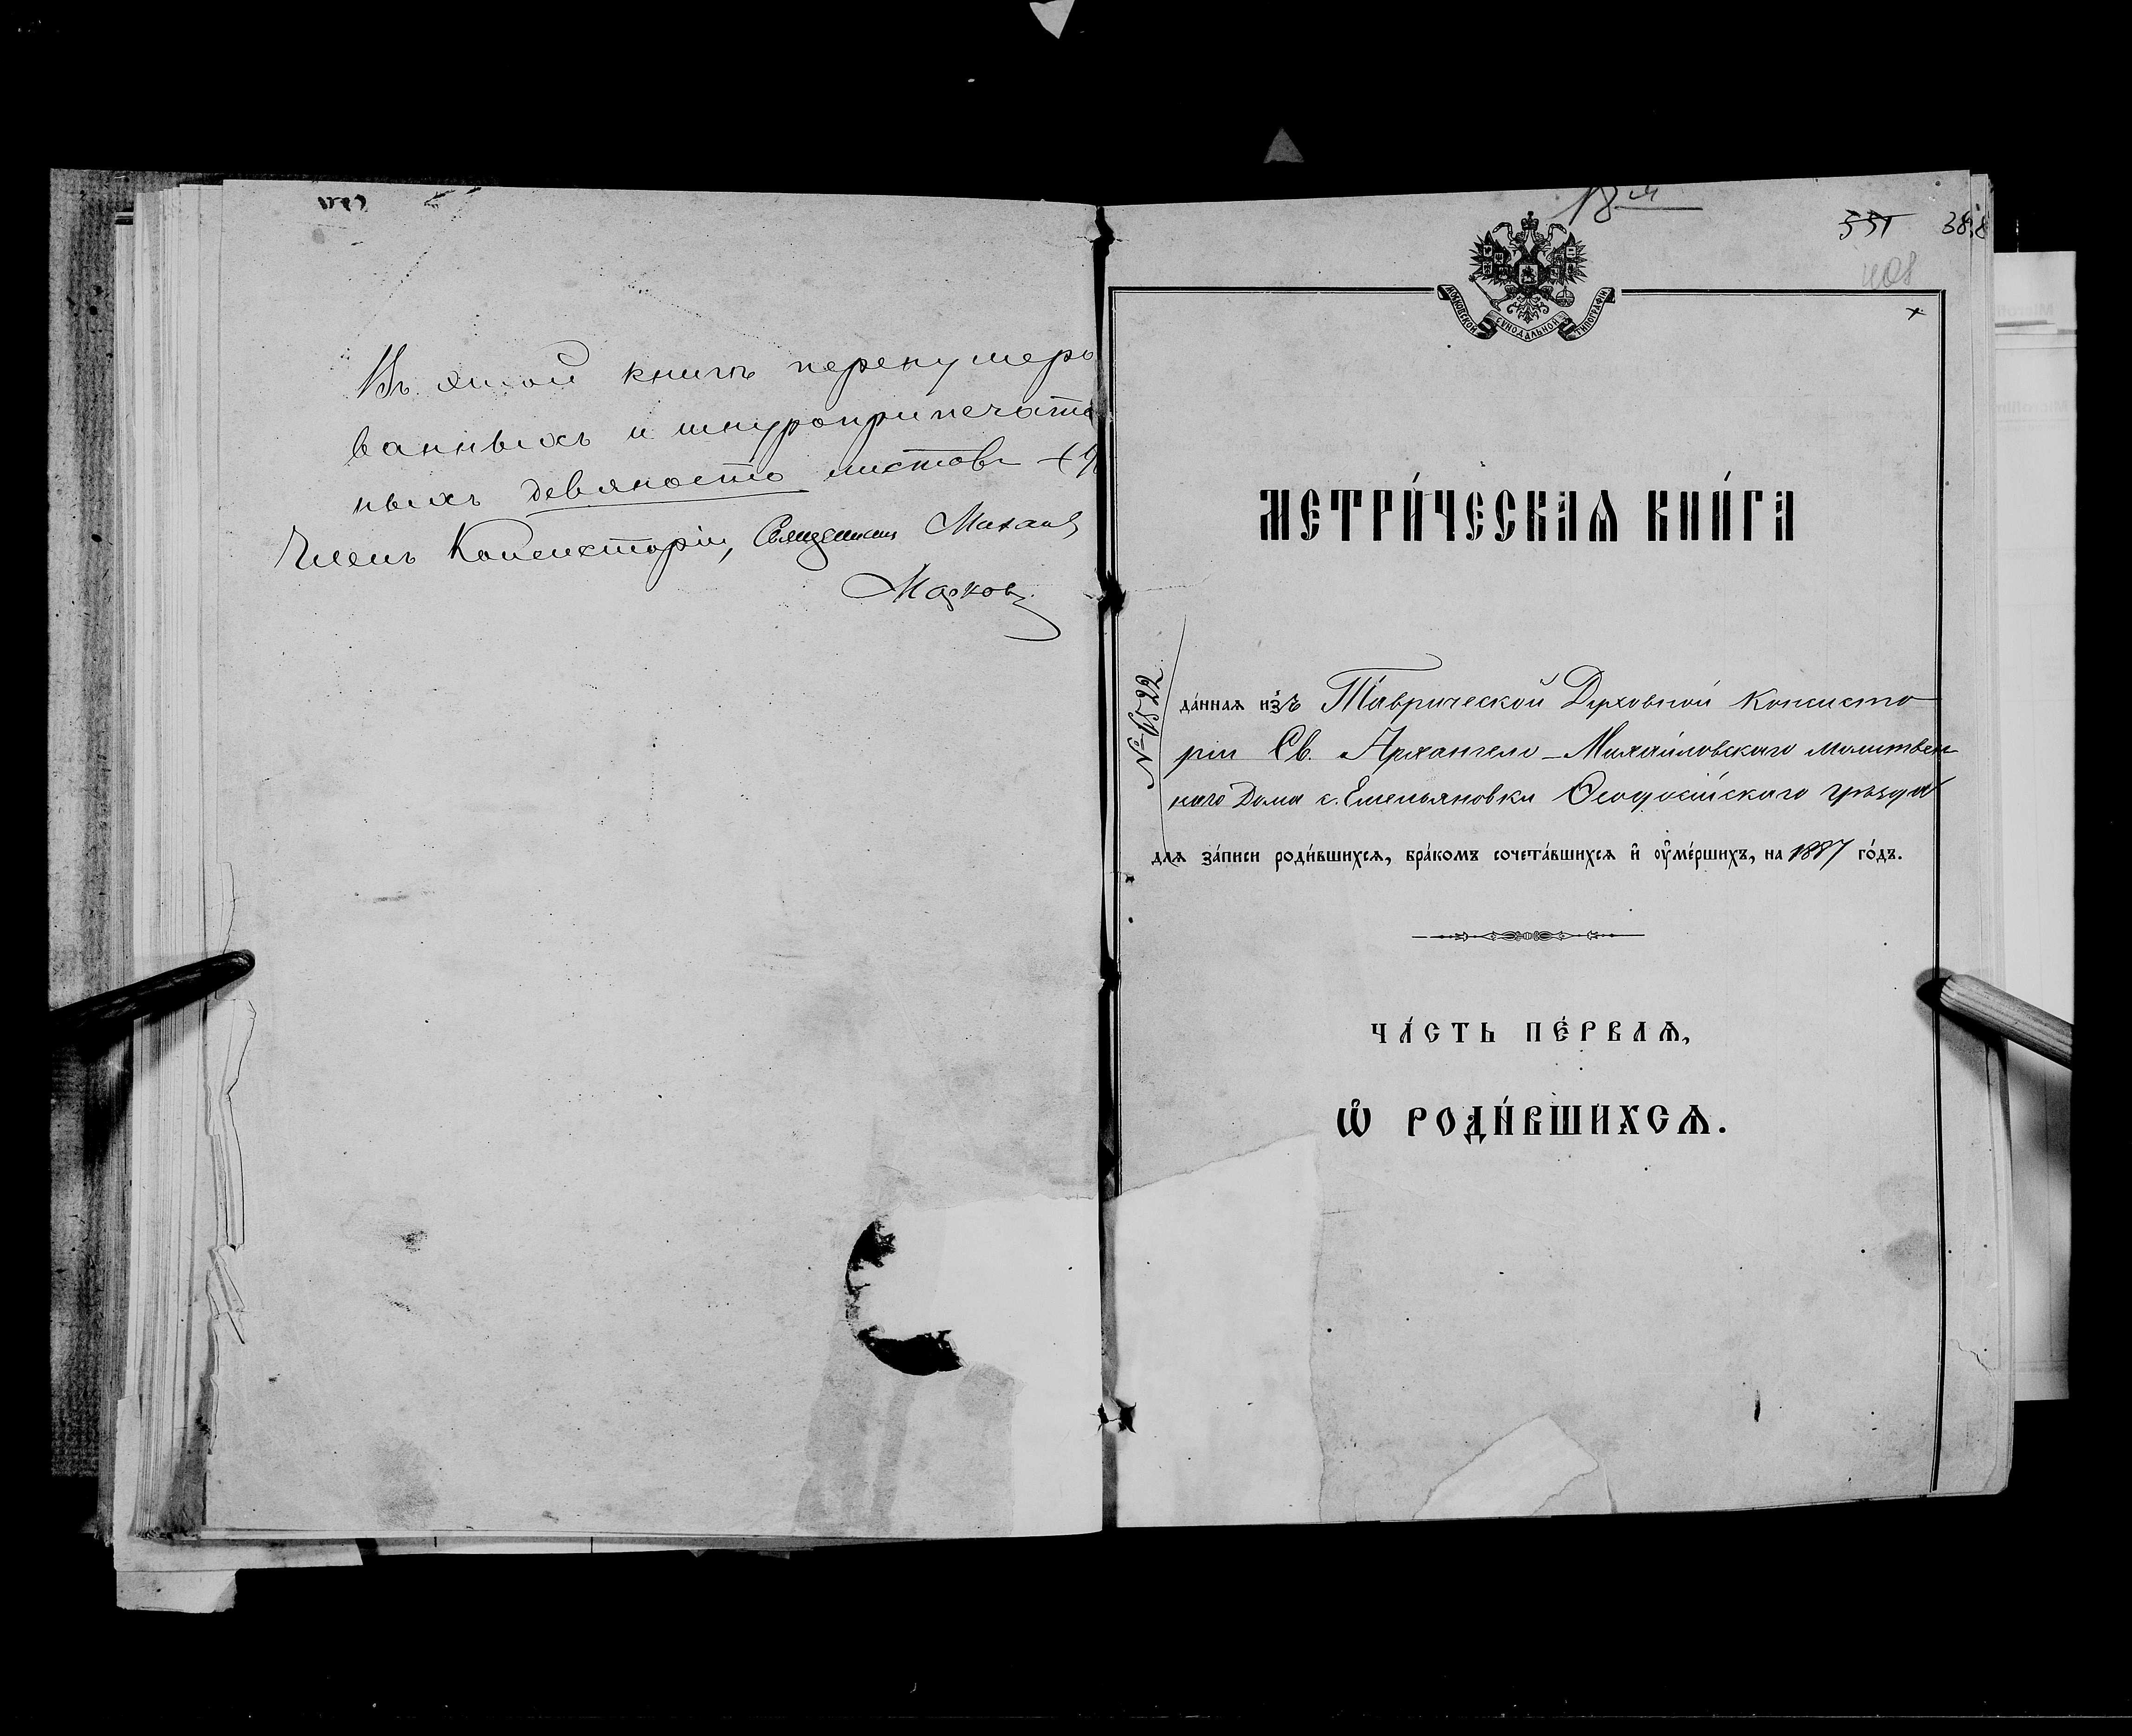 Въ этой книгѣ перенумеро
ванныхъ и шнуроприпечата
ныхъ девяносто листовъ
Членъ Консисторіи, Священникъ Михаилъ
Марковъ
18
551 388
408
МОСКОВСКОЙ СѴНОДАЛЬНОЙ ТИПОГРАФІИ
МЕТРИ́ЧЕСКАѦ КНИ́ГА
да́ннаѧ и҆зъ Таврической Духовной Консисто
ріи Св. Архангело-Михайловскаго молитвен
наго Дома с. Емельяновки Ѳеодосійскаго уѣзда
длѧ за́писи роди́вшихсѧ, бра́комъ сочета́вшихсѧ и҆ ᲂу҆ме́ршихъ, на 1887 го́дъ.
ЧА́СТЬ ПЕ́РВАѦ,
Ѡ҆ РОДИ́ВШИХСѦ.